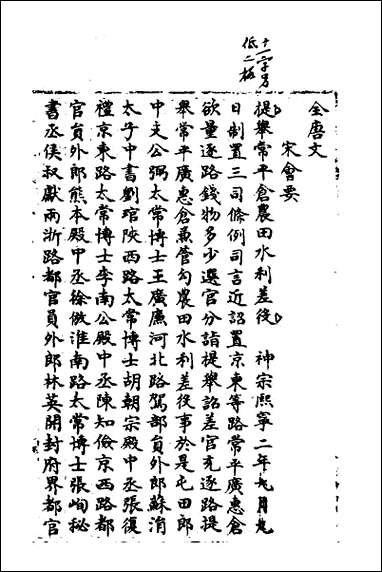 十一二字另
低二格
全唐文
宋會要
提舉常平倉農田水利差役 神宗熙寧二年九月九
日制置三司條例司言近詔置京東等路常平廣惠倉
欲量逐路錢物多少選官分詣提舉詔差官充逐路提
舉常平廣惠倉兼管勾農田水利差役事於是屯田郎
中皮公弼太常博士王廣廉河北路駕部員外郎蘇涓
太子中書劉琯陝西路太常博士胡朝宗殿中丞張復
禮京東路太常博士李南公殿中丞陳知儉京西路都
官員外郎熊本殿中丞徐倣淮南路太常博士張峋秘
書丞侯叔獻兩浙路都官員外郎林英開封府界都官